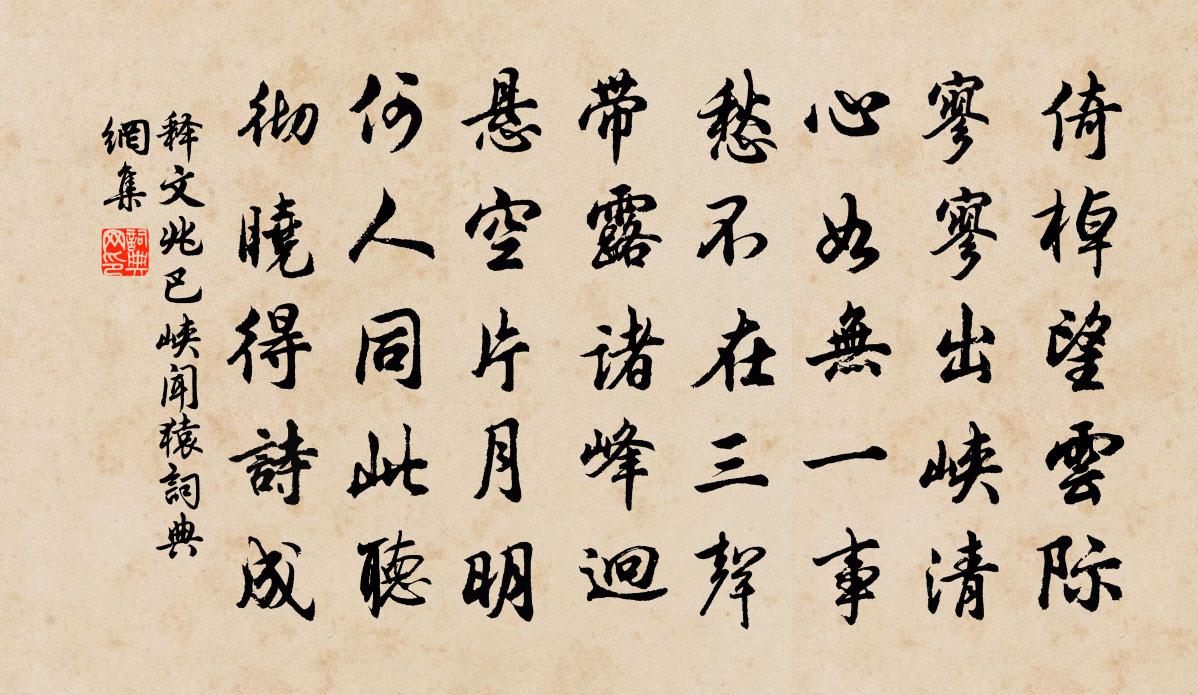 倚棹望雲际
寥寥出峡清
心如無一事
愁不在三聲
带露诸峰迥
悬空片月明
何人同此聽
彻曉得詩成
释文兆巴峡闻猿詞典
網集
詞典网印